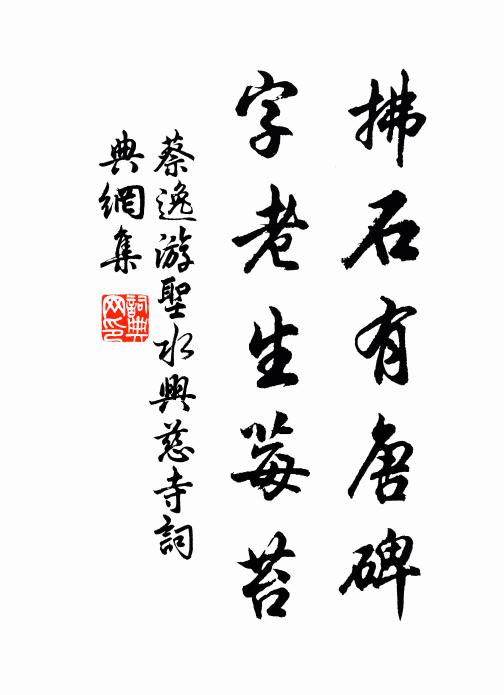 拂石有唐碑
字老生莓苔
蔡逸游聖水興慈寺詞
典網集
詞典网印